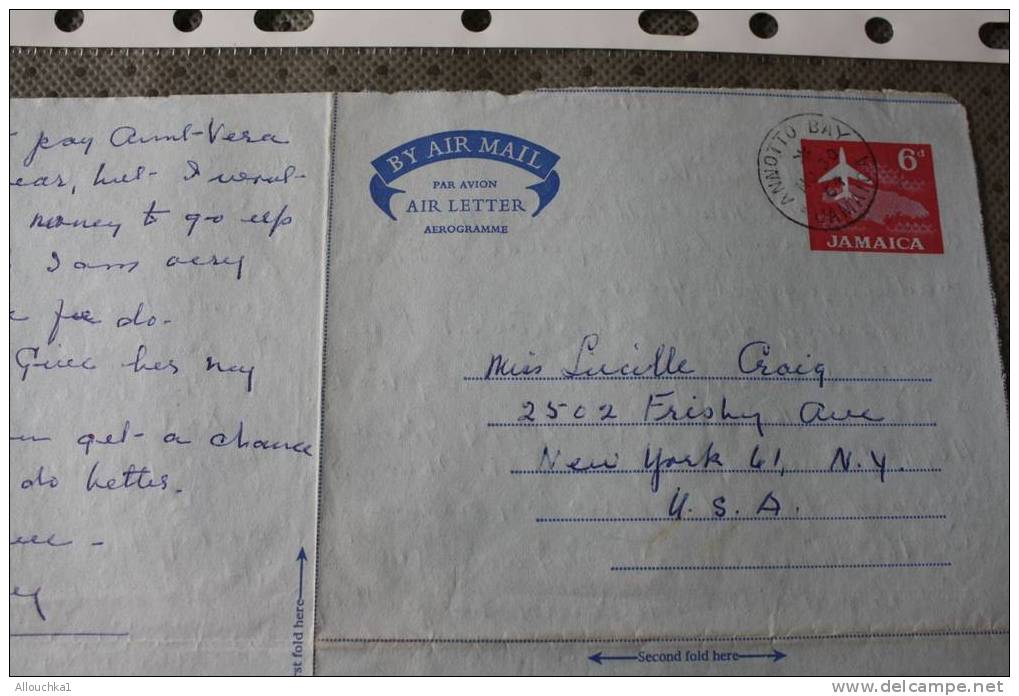 pay Aunt-Vera
ear, but I want-
money to go up
I am very
for do-
Give her my
get- a chance
do better.
BY AIR MAIL
PAR AVION
AIR LETTER
AEROGRAMME
ANNOTTO BAY
JAMAICA
6d
JAMAICA
Miss Lucille Craig
2502 Frisby Ave
New York 61, N.Y.
U. S. A.
rst fold here
Second fold here
Allouchka1
delcampe.net